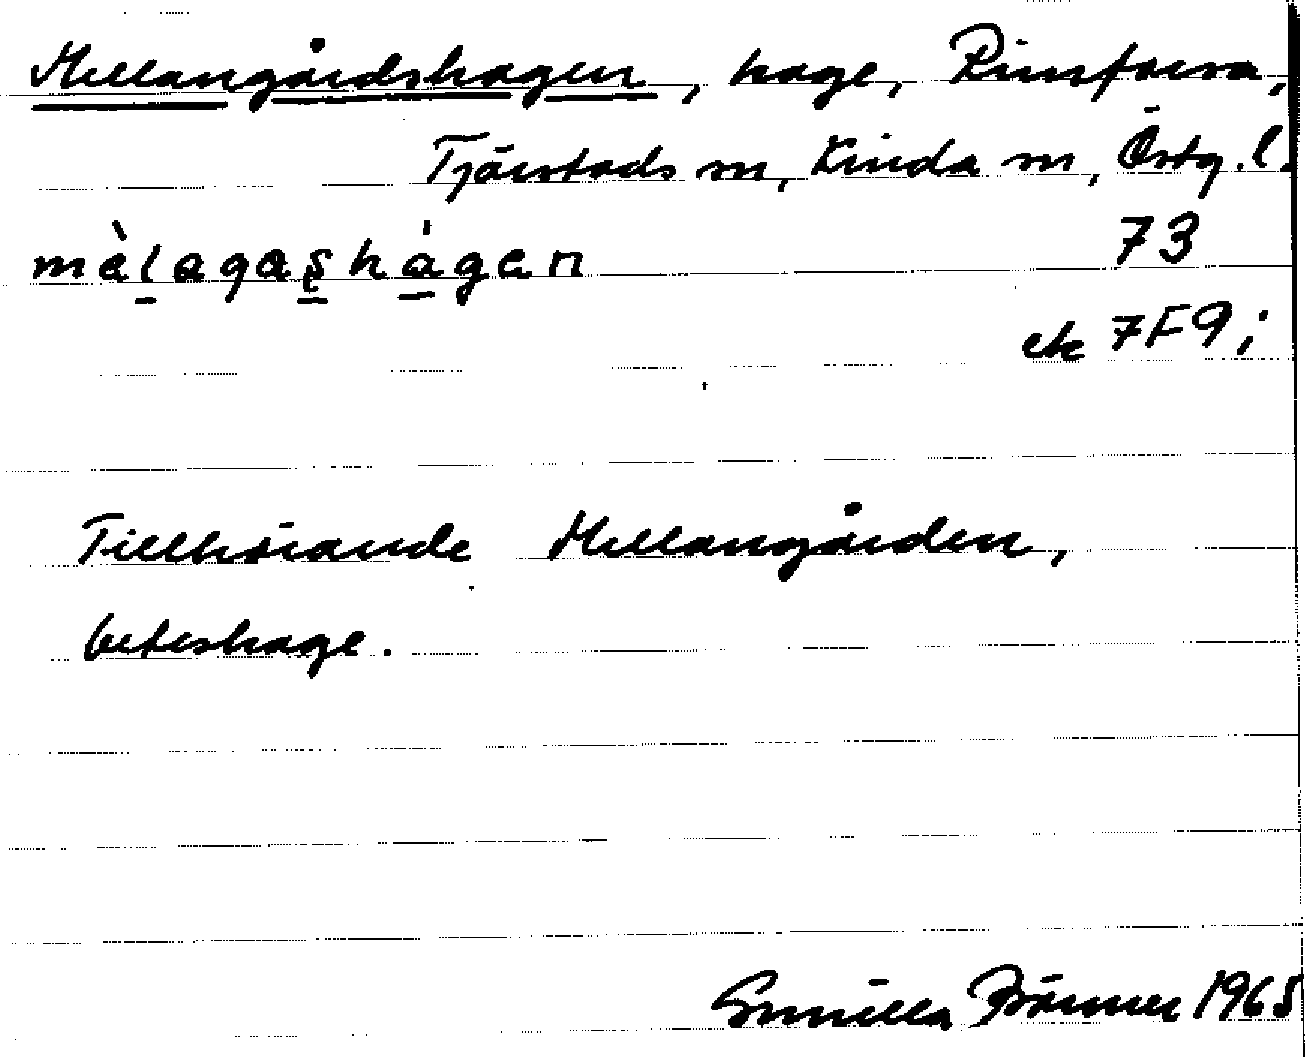 Mellangårdshagen, hage, Rimforsa,
Tjärstads sn, Kinda sn, Östg. l.
mèlagashágen 73
ek 7F9;
Tillhörande Mellangården,
beteshage.
Gunilla 1965